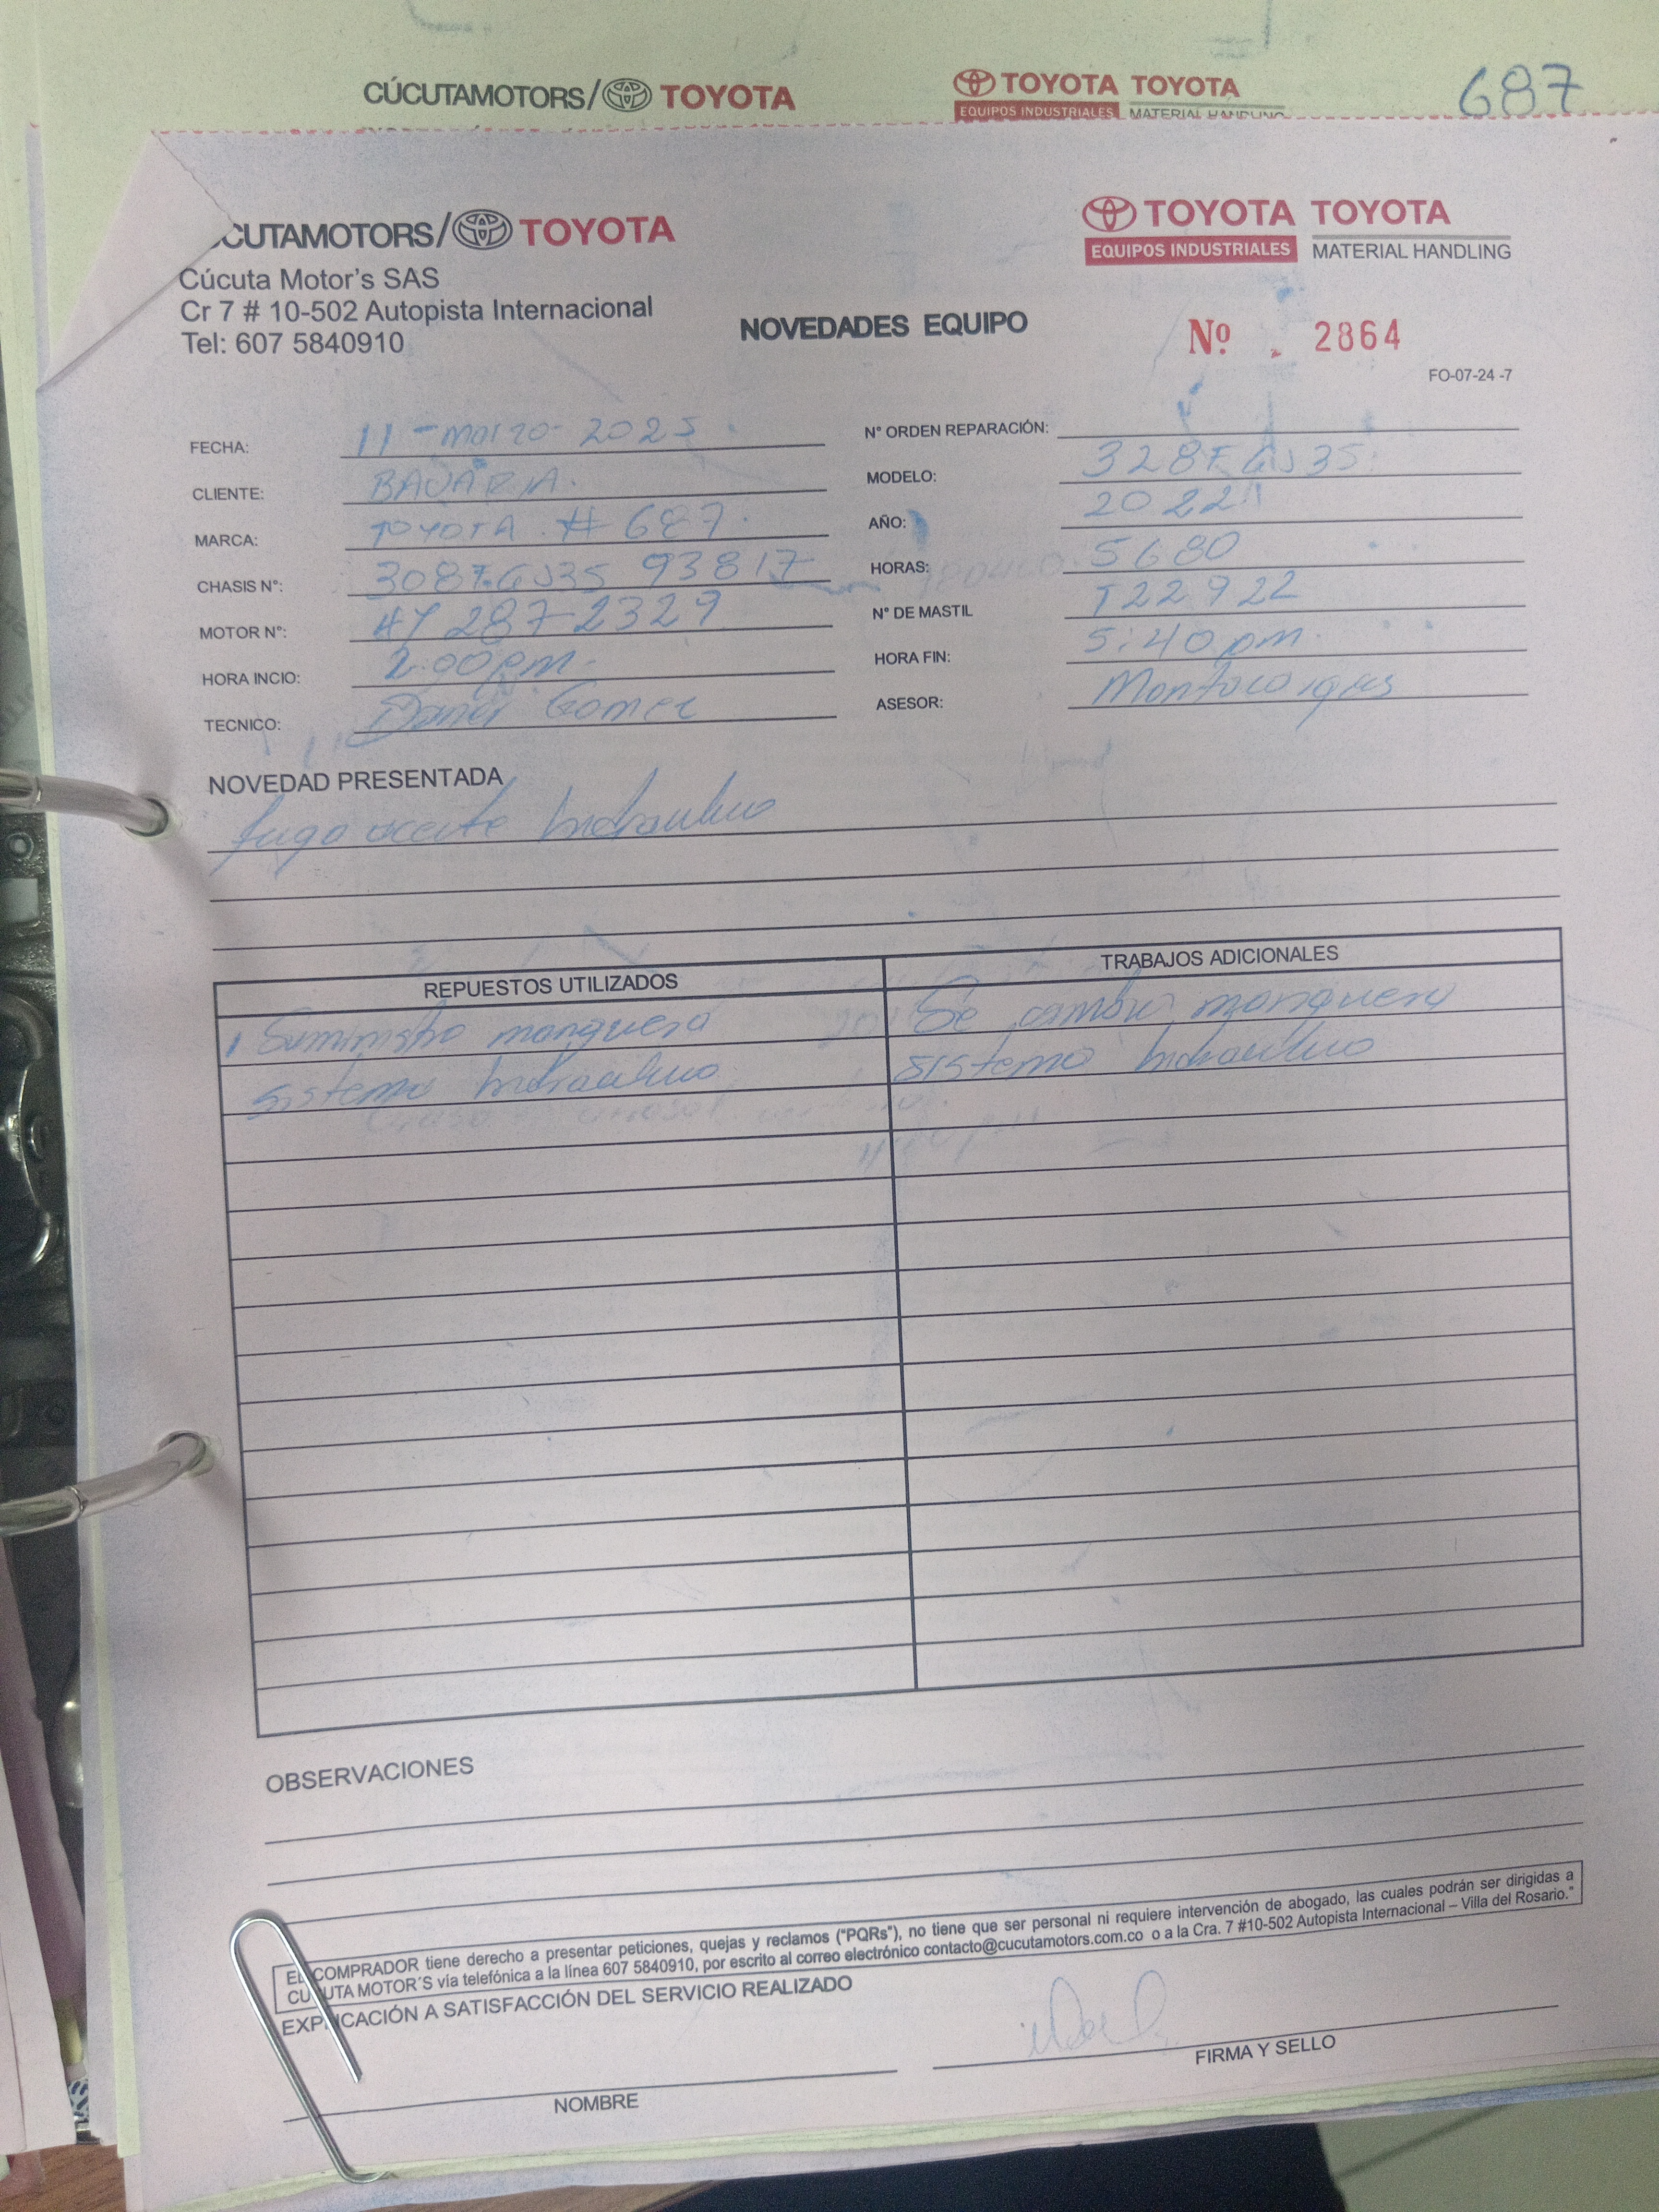 CÚCUTAMOTORS/ TOYOTA
TOYOTA TOYOTA
EQUIPOS INDUSTRIALES MATERIAL HANDLING
687
CUTAMOTORS/ TOYOTA
TOYOTA TOYOTA
EQUIPOS INDUSTRIALES MATERIAL HANDLING
Cúcuta Motor's SAS
Cr 7 # 10-502 Autopista Internacional
Tel: 607 5840910
NOVEDADES EQUIPO
Nº 2864
FO-07-24 -7
FECHA: 11 - marzo - 2025
N° ORDEN REPARACIÓN:
CLIENTE: BAVARIA.
MODELO: 328FGJ35
MARCA: TOYOTA # 687.
AÑO: 2022
CHASIS N°: 308FGJ35 93817
HORAS: 5680
MOTOR N°: 4Y 287-2329
N° DE MASTIL T22922
HORA INCIO: 2:00pm.
HORA FIN: 5:40 pm.
TECNICO: Gomez
ASESOR: Montacargas
NOVEDAD PRESENTADA
fuga aceite hidraulico
REPUESTOS UTILIZADOS
TRABAJOS ADICIONALES
1 Suministro manguera
sistema hidraulico
Se cambio manguera
sistema hidraulico
OBSERVACIONES
EL COMPRADOR tiene derecho a presentar peticiones, quejas y reclamos ("PQRs"), no tiene que ser personal ni requiere intervención de abogado, las cuales podrán ser dirigidas a
CUCUTA MOTOR´S vía telefónica a la línea 607 5840910, por escrito al correo electrónico contacto@cucutamotors.com.co o a la Cra. 7 #10-502 Autopista Internacional – Villa del Rosario."
EXPLICACIÓN A SATISFACCIÓN DEL SERVICIO REALIZADO
NOMBRE
FIRMA Y SELLO